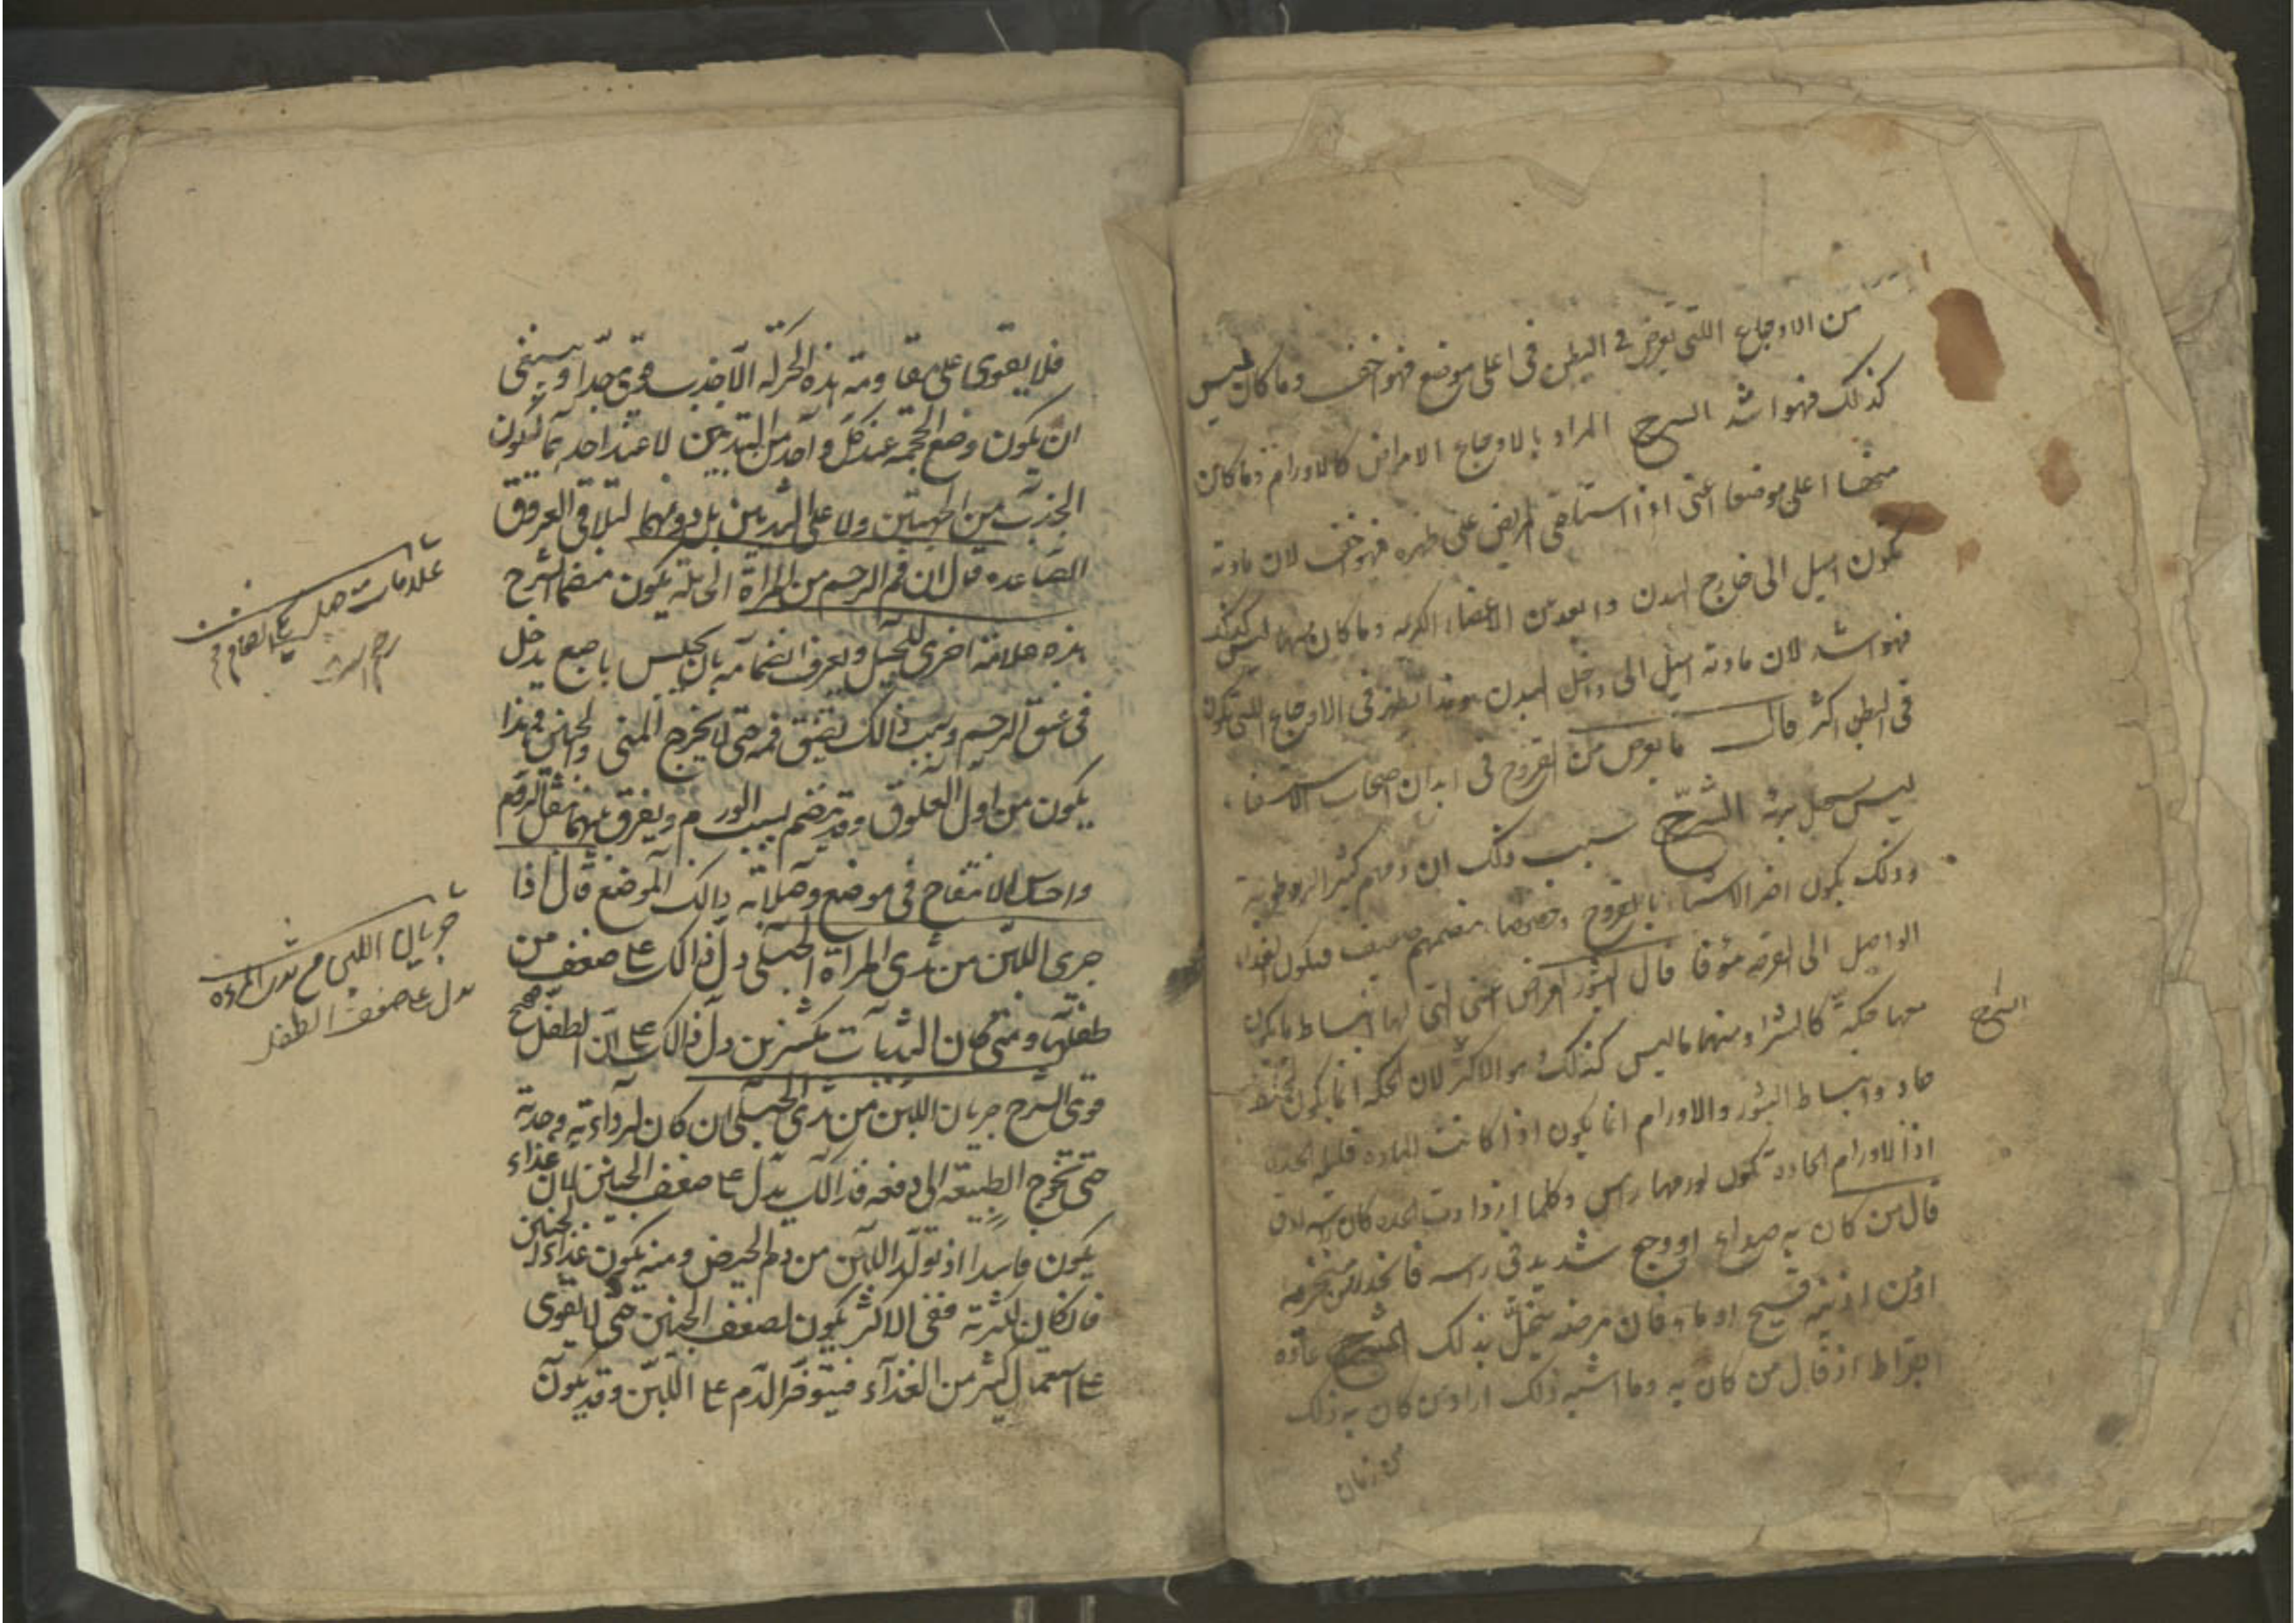 من الاوجاع اللتى تعرض فى البطن فى اعلى موضع فهو اخف وما كان ليس
كذلك فهو اشد الشرح المراد بالاوجاع الامراض كالاورام وما كان
منها اعلى موضعا اعنى اذا استلقى المريض على ظهره فهو اخف لان مادته
تكون اميل الى خارج البدن وابعد من الاعضاء الكريمه وما كان منها ليس كذلك
فهو اشد لان مادته اميل الى داخل البدن وهذا يظهر فى الاوجاع اللتى تكون
فى البطن اكثر قال ما يعرض من القروح فى ابدان اصحاب الاستسقاء
ليس يسهل برئه الشرح سبب ذلك ان دمهم كثير الرطوبة
وذلك يكون اضر الاشياء بالقروح وخصوصا هضمهم ضعيف فيكون الغذاء
الواصل الى القرحه مؤفا قال البثور العراض اعنى التى لها انبساط ما يكون
معها حكة كالشرا ومنها ما ليس كذلك هو الاكثر لان الحكه انما يكون لخلط
حاد وانبساط البثور والاورام انما يكون اذا كانت الماده قليله الحده
اذ الاورام الحادة تكون لورمها راس وكلما ازدادت الحده كان راسه ادق
قال من كان به صداع او وجع شديد فى راسه فانحدر من منخريه
او من اذنيه قيح او ماء فان مرضه ينحل بذلك الشرح عادة
ابقراط اذ قال من كان به وما اشبه ذلك اراد من كان به ذلك
من زمان
الشرح
فلا يقوى على مقاومة هذه الحركة الا جذب قوى جدا وينبغى
ان يكون وضع المحجمه عند كل واحد من الثديين لا عند احدهما ليكون
الجذب من الجهتين ولا على الثديين بل دونهما لتلاقى العروق
الصاعده قال ان فم الرحم من المراة الحامله يكون منضما الشرح
هذه علامة اخرى للحبل ويعرف انضمامه بان يجس باصبع يدخل
فى عنق الرحم وسبب ذالك تضيق فمه حتى لا يخرج المنى والجنين فهذا
يكون من اول العلوق وقد ينضم بسبب الورم ويفرق بينهما بثقل الورم
واحساس الانتفاخ فى موضع وصلابة ذالك الموضع قال اذا
جرى اللبن من ثدى المراة الحبلى دل ذالك على ضعف من
طفلها ومتى كان الثديان مكتنزين دل ذالك على ان الطفل صحيح
قوى الشرح جريان اللبن من ثدى الحبلى ان كان لرداءته وحدته
حتى تحوج الطبيعة الى دفعه فذالك يدل على ضعف الجنين لان غذاءه
يكون فاسدا اذ تولد اللبن من دم الحيض ومنه يكون غذاء الجنين
فان كان لكثرته ففى الاكثر يكون لضعف الجنين حتى لا يقوى
على استعمال كثير من الغذاء فيتوفر الدم على اللبن وقد يكون
جريان اللبن من ثدى المراه
يدل على ضعف الطفل